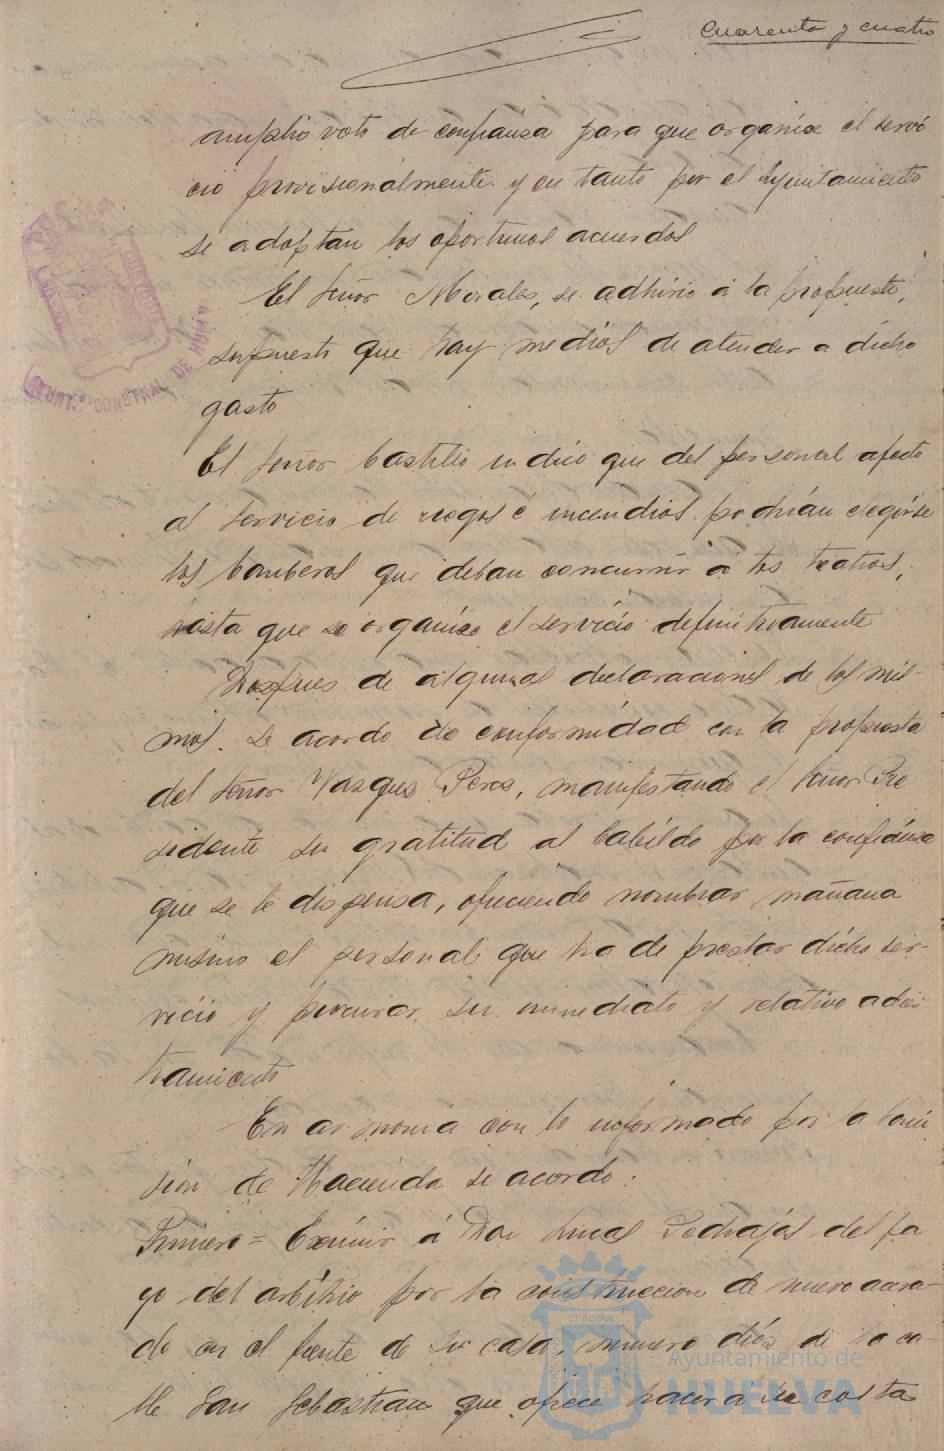 Cuarenta y cuatro
amplio voto de confianza para que organice el servi
cio provisionalmente y en tanto por el Ayuntamiento
se adoptan los oportunos acuerdos
El señor Morales, se adhirio á la propuesta,
supuesto que hay medios de atender a dicho
gasto
El señor Castillo indico que del personal afecto
al servicio de riegos é incendios podrián elegirse
los bomberos que deban concurrir á los teatros,
hasta que se organice el servicio definitivamente
Despues de algunas declaraciones de los mis-
mos. se acordo de conformidad con la propuesta
del señor Vazques Peres, manifestando el señor Pre
sidente su gratitud al Cabildo por la confianza
que se le dispensa, ofreciendo nombrar mañana
mismo el personal que ha de prestar dicho ser-
vicio y procurar su inmediato y relativo adies
tramiento
En armonia con lo informado por la Comi
sion de Hacienda se acordo:
Primero = Eximir á Don del pa
go del arbitrio por la construccion de nuevo acera-
do en el frente de su casa, numero diéz de la ca-
lle San Sebastian que ofrece hacer a su costa
AYUNT.º CONSTNAL DE HUELVA
Ayuntamiento de
HUELVA